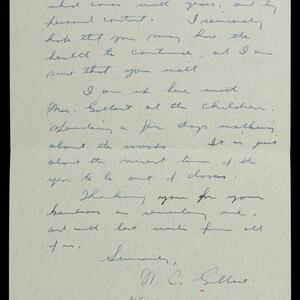 what comes with years, and by
personal contact. I sincerely
hope that you may have the
health to continue, and I am
sure that you will.
I am up here with
Mrs. Gilbert and the children
spending a few days walking
about the woods. It is just
about the nicest time of the
year to be out of doors.
Thanking you for your
kindness in me,
and with best wishes from all
of us.
Sincerely,
N. C. Gilbert.